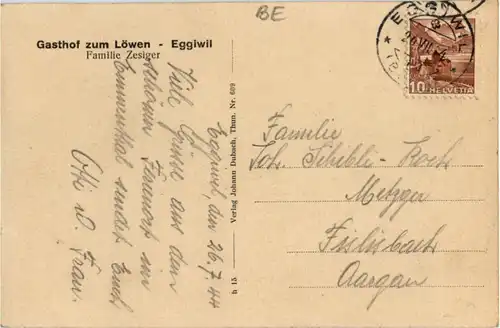 BE
Gasthof zum Löwen - Eggiwil
Familie Zesiger
EGGIWIL
10 HELVETIA
Eggiwil, den 26.7.44
Viele Grüsse aus dem
schönen Ferienort im
Emmenthal sendet Euch
Otti u. Frau.
h 15. Verlag Johann Dubach, Thun. Nr. 608
Familie
Joh. Schibli-Koch
Metzger
Fislisbach
Aargau